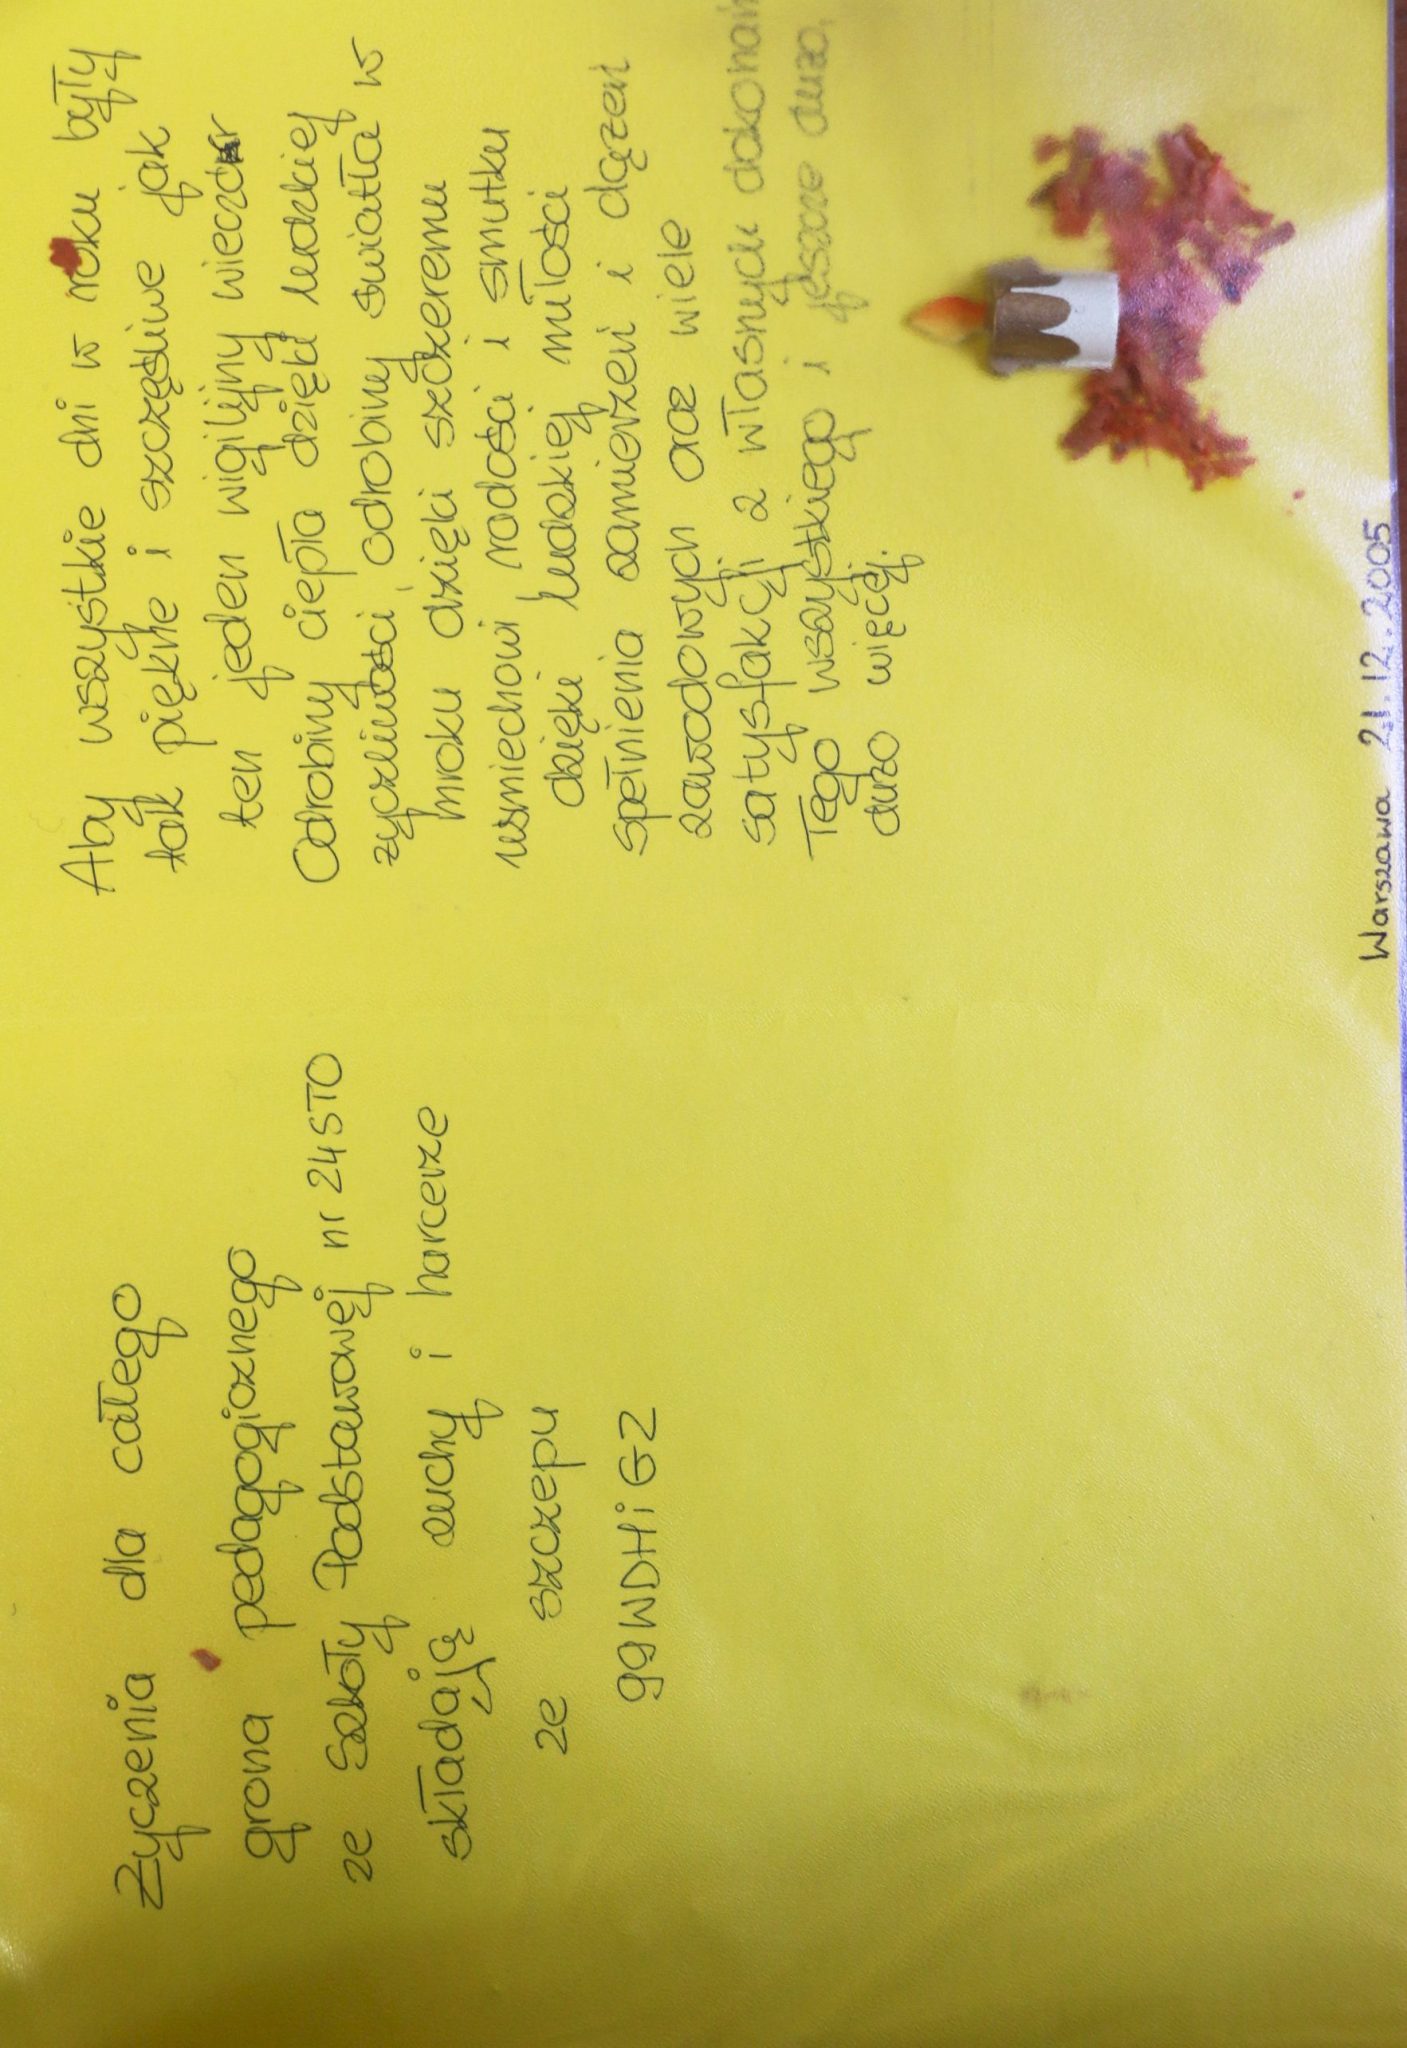 Życzenia dla całego
grona pedagogicznego
ze Szkoły Podstawowej nr 24 STO
składają zuchy i harcerze
ze szczepu
99 WDHi GZ
Aby wszystkie dni w roku były
tak piękne i szczęśliwe jak
ten jeden wigilijny wieczór
Odrobiny ciepła dzięki ludzkiej
życzliwości, odrobiny światła w
mroku dzięki szczeremu
uśmiechowi radości i smutku
dzięki ludzkiej miłości
spełnienia zamierzeń i dążeń
zawodowych oraz wiele
satysfakcji z własnych dokonań
Tego wszystkiego i jeszcze dużo,
dużo więcej.
Warszawa 21.12.2005